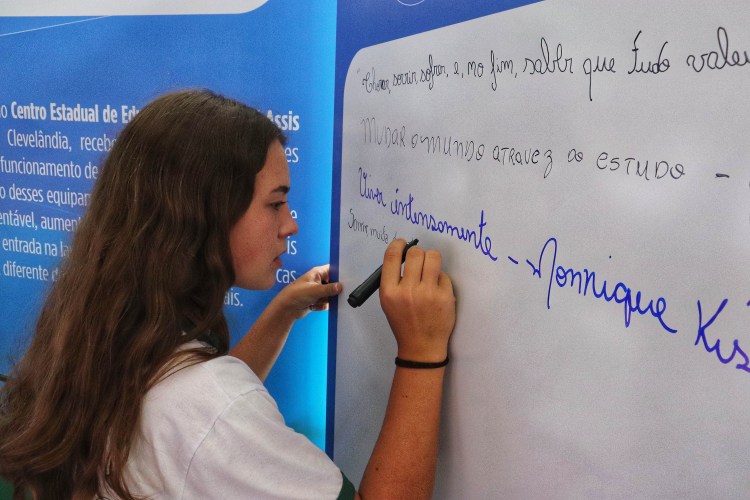 o Centro Estadual de Edu Assis
Clevelândia, receb es
funcionamento de
o desses equipar
entável, aument e
entrada na la s
diferente d cas
ais.
"Chorar, sorrir, sofrer, e, no fim, saber que tudo valeu
MUDAR O MUNDO ATRAVEZ DO ESTUDO -
Viver intensamente - Monnique Kis